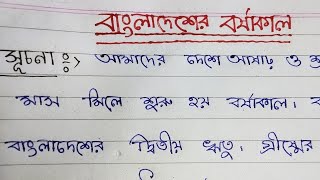 বাংলাদেশের বর্ষাকাল
সূচনা :> আমাদের দেশে আষাঢ় ও
মাস মিলে শুরু হয় বর্ষাকাল।
বাংলাদেশের দ্বিতীয় ঋতু। গ্রীষ্মের